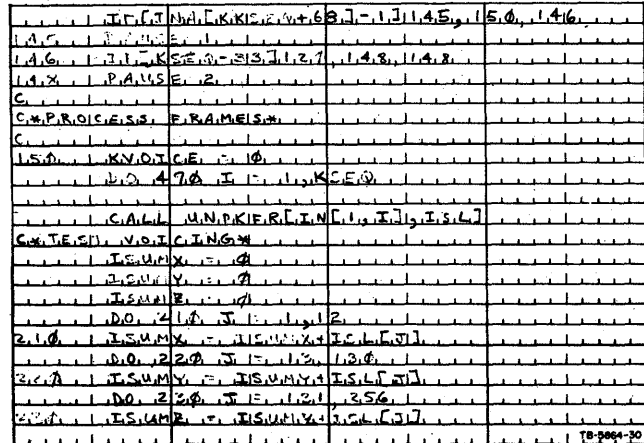 IF[INA[KKSEQ+68]-1]145,150,146
145 PAUSE 1
146 IF[KSEQ-33]127,148,148
14X PAUSE 2
C
C*PROCESS FRAMES*
C
150 KVOICE = 0
DO 470 I = 1,KSEQ
CALL UNPKFR[IN[1,I],ISL]
C*TEST VOICING*
ISUMX = 0
ISUMY = 0
ISUMZ = 0
DO 210 J = 1,12
210 ISUMX = ISUMX+ISL[J]
DO 220 J = 13,130
220 ISUMY = ISUMY+ISL[J]
DO 230 J = 131,256
230 ISUMZ = ISUMZ+ISL[J]
TB-5864-30